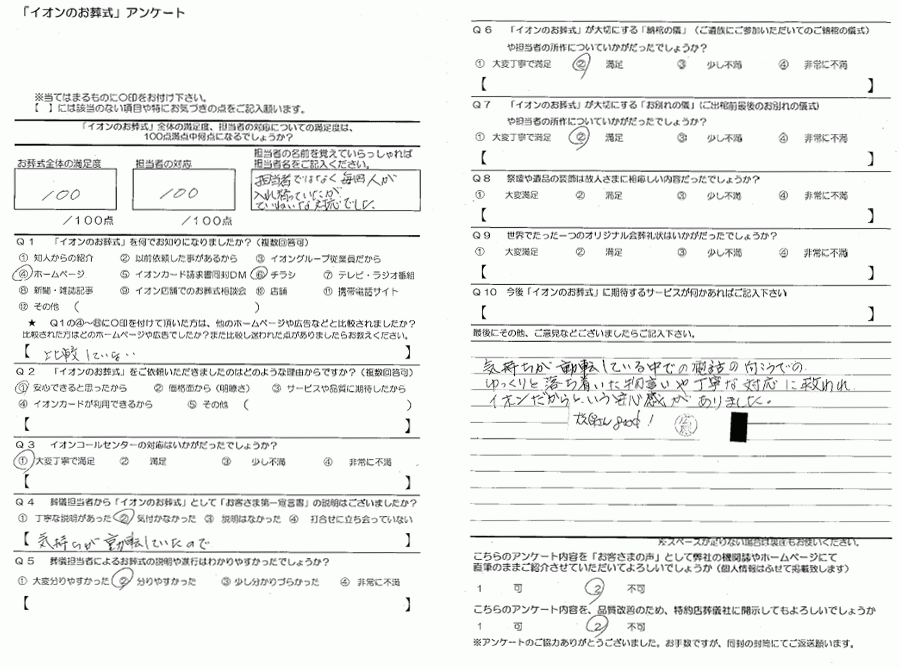 「イオンのお葬式」アンケート
※当てはまるものに○印をお付け下さい。
【　】には該当のない項目や特にお気づきの点をご記入願います。
「イオンのお葬式」全体の満足度、担当者の対応についての満足度は、
100点満点中何点になるでしょうか?
お葬式全体の満足度
担当者の対応
担当者の名前を覚えていらっしゃれば
担当者名をご記入ください。
100
100
担当者ではなく毎回人が
入れ替っていたがていねいな対応でした
/100点
/100点
Q1 「イオンのお葬式」を何でお知りになりましたか?(複数回答可)
① 知人からの紹介 ② 以前依頼した事があるから ③ イオングループ従業員だから
④ ホームページ ⑤ イオンカード請求書同封DM ⑥ チラシ ⑦ テレビ・ラジオ番組
⑧ 新聞・雑誌記事 ⑨ イオン店舗でのお葬式相談会 ⑩ 店舗 ⑪ 携帯電話サイト
⑫ その他 (　)
★ Q1の④~⑥に○印を付けて頂いた方は、他のホームページや広告などと比較されましたか?
比較された方はどのホームページや広告でしたか?また比較し迷われた点がありましたらお教えください。
【 比較していない 】
Q2 「イオンのお葬式」をご依頼いただきましたのはどのような理由からですか?(複数回答可)
① 安心できると思ったから ② 価格面から(明瞭さ) ③ サービスや品質に期待したから
④ イオンカードが利用できるから ⑤ その他 (　)
【　】
Q3 イオンコールセンターの対応はいかがだったでしょうか?
① 大変丁寧で満足 ② 満足 ③ 少し不満 ④ 非常に不満
【　】
Q4 葬儀担当者から「イオンのお葬式」として「お客さま第一宣言書」の説明はございましたか?
① 丁寧な説明があった ② 気付かなかった ③ 説明はなかった ④ 打合せに立ち会っていない
【 気持ちが動転していたので 】
Q5 葬儀担当者によるお葬式の説明や進行はわかりやすかったでしょうか?
① 大変分りやすかった ② 分りやすかった ③ 少し分かりづらかった ④ 非常に不満
【　】
Q6 「イオンのお葬式」が大切にする「納棺の儀」(ご遺族にご参加いただいてのご納棺の儀式)
や担当者の所作についていかがだったでしょうか?
① 大変丁寧で満足 ② 満足 ③ 少し不満 ④ 非常に不満
【　】
Q7 「イオンのお葬式」が大切にする「お別れの儀」(ご出棺前最後のお別れの儀式)
や担当者の所作についていかがだったでしょうか?
① 大変丁寧で満足 ② 満足 ③ 少し不満 ④ 非常に不満
【　】
Q8 祭壇や遺品の装飾は故人さまに相応しい内容だったでしょうか?
① 大変満足 ② 満足 ③ 少し不満 ④ 非常に不満
【　】
Q9 世界でたった一つのオリジナル会葬礼状はいかがだったでしょうか?
① 大変満足 ② 満足 ③ 少し不満 ④ 非常に不満
【　】
Q10 今後「イオンのお葬式」に期待するサービスが何かあればご記入下さい
【　】
最後にその他、ご意見などございましたらご記入下さい。
気持ちが動転している中での電話の向こうでの
ゆっくりと落ち着いた物言いや丁寧な対応に救われ
イオンだからという安心感がありました。
※スペースが足りない場合は裏面もお使いください。
こちらのアンケート内容を「お客さまの声」として弊社の機関誌やホームページにて
直筆のままご紹介させていただいてよろしいでしょうか(個人情報はふせて掲載致します)
1 可 2 不可
こちらのアンケート内容を、品質改善のため、特約店葬儀社に開示してもよろしいでしょうか
1 可 2 不可
※アンケートのご協力ありがとうございました。お手数ですが、同封の封筒にてご返送願います。